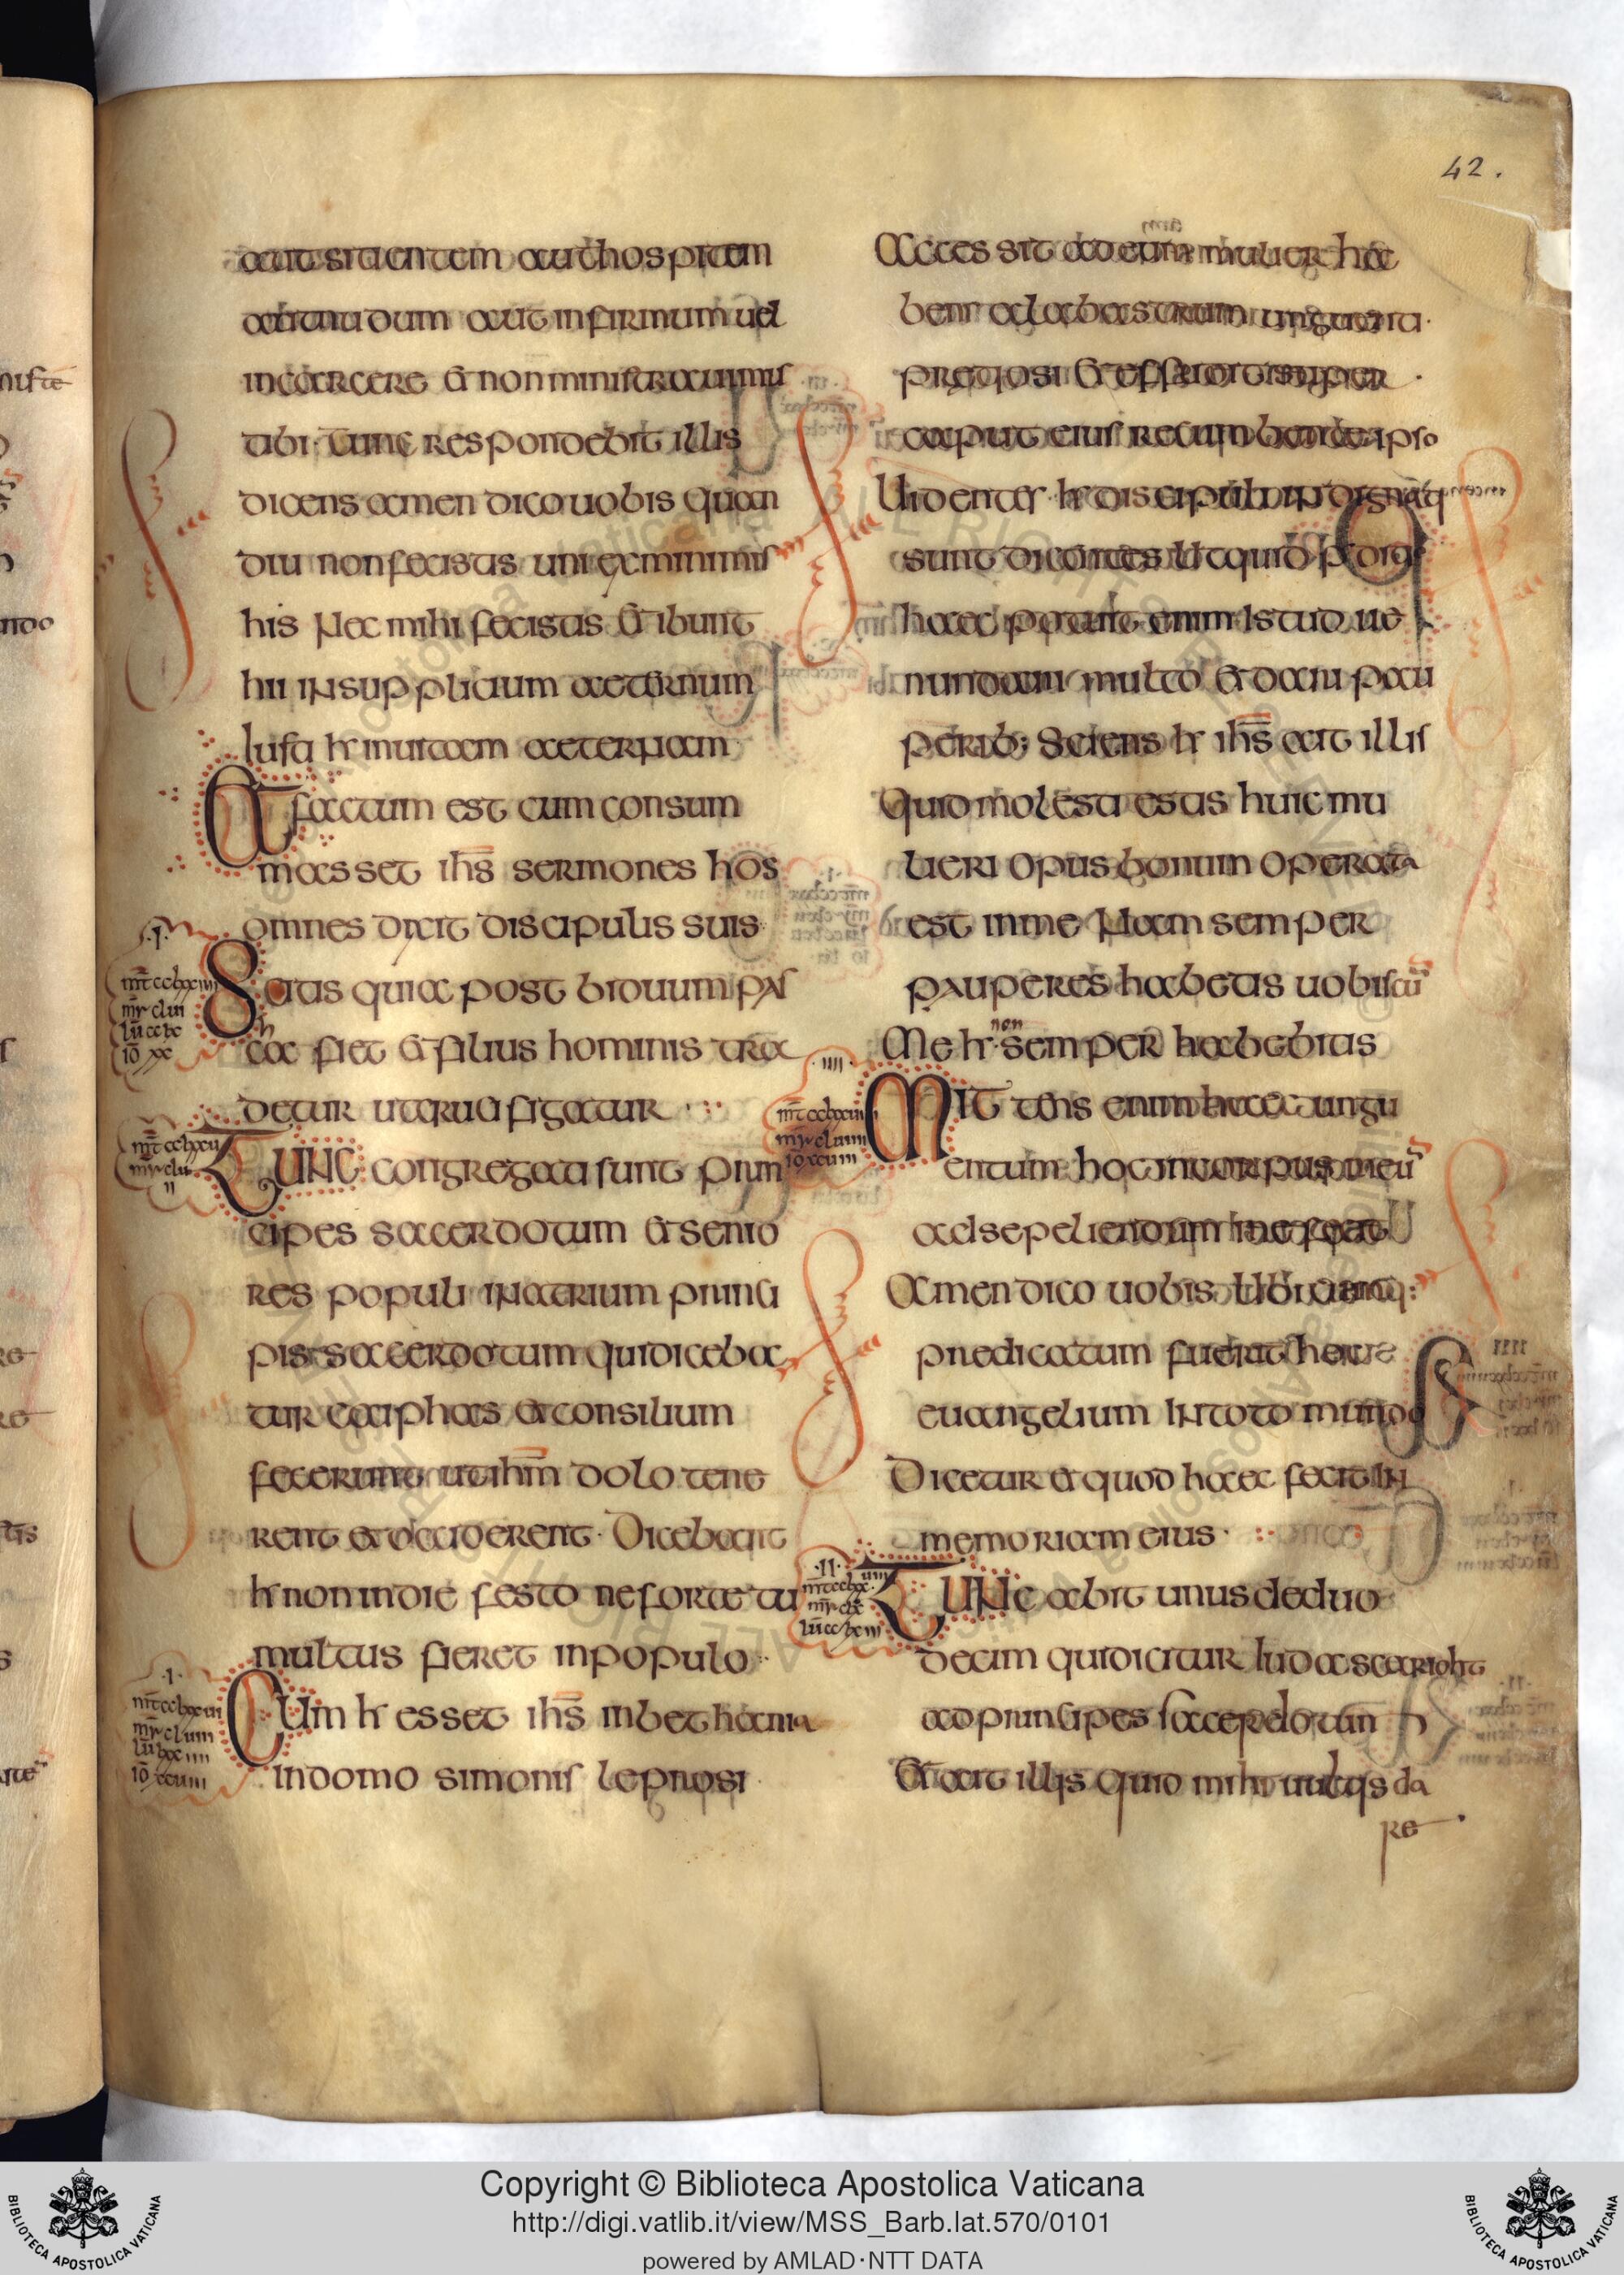 42.
aut sitientem aut hospitem
aut nudum aut infirmum uel
in carcere et non ministrauimus
tibi. Tunc respondebit illis
dicens amen dico uobis quan
diu non fecistis uni ex minimis
his Nec mihi fecistis Et ibunt
hii IN supplicium aeternum
Iusti ħ in uitam aeternam
Et factum est cum consum
masset ihs̄ sermones hos
omnes dixit discipulis suis
.I.
Scitis quia post biduum pas
cha fiet et filius hominis tra
detur ut crucifigatur
TUNC congregati sunt prin
cipes sacerdotum et senio
res populi IN atrium princi
pis sacerdotum qui diceba
tur caiphas et consilium
fecerunt ut ihm̄ dolo tene
rent et occiderent. Dicebant
ħ non in die festo ne forte tu
multus fieret in populo
.I.
CUm ħ esset ihs̄ in bethania
in domo simonis leprosi
Accessit ad eum mulier ha
bens alabastrum unguenti
pretiosi et effudit super
caput eius recumbente ipso
Uidentes ħ discipuli indignati
sunt dicentes Ut quid perditio
haec potuit enim Istud ue
nundari multo et dari pau
perib; Sciens ħ ihs̄ ait illis
Quid molesti estis huic mu
lieri opus bonum operata
est in me Nam semper
pauperes habetis uobiscū
Me ħ non semper habebitis
.IIII.
MITtens enim haec ungu
entum hoc in corpus meū
ad sepeliendum me fecit
Amen dico uobis Ubicumq:
predicatum fuerit hoc
euangelium IN toto mundo
Dicetur et quod haec fecit IN
memoriam eius.
.II.
TUNC abit unus de duo
decim qui dicitur Iudas scarioht
ad principes sacerdotum
Et ait illis quid mihi uultis da
re
Copyright © Biblioteca Apostolica Vaticana
http://digi.vatlib.it/view/MSS_Barb.lat.570/0101
powered by AMLAD·NTT DATA
BIBLIOTECA APOSTOLICA VATICANA
BIBLIOTECA APOSTOLICA VATICANA